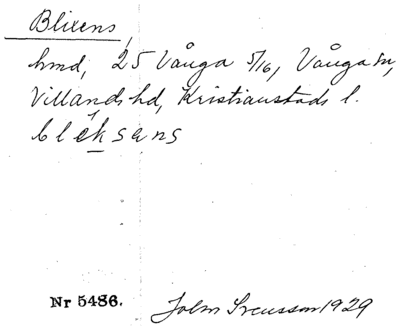 Blixens,
hmd, 25 Vånga 5/16, Vånga sn,
Villands hd, Kristianstads l.
bleksans
Nr 5486.
John Svensson 1929